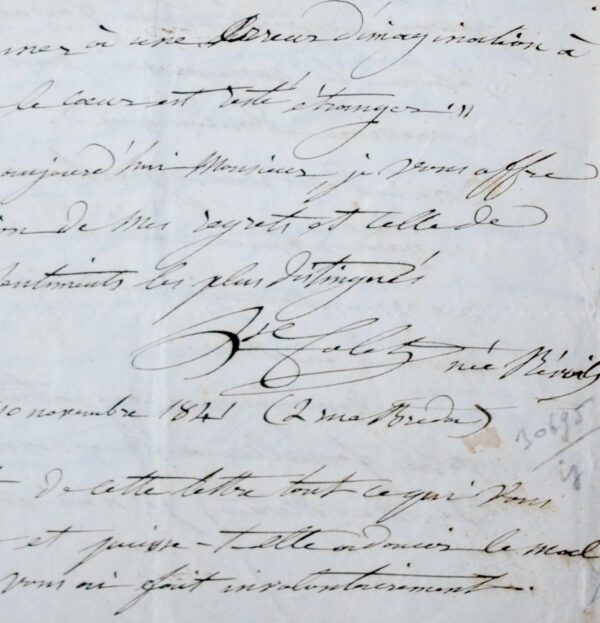 à une Erreur d'imagination à
le cœur est resté étranger"
aujourd'hui Monsieur, je vous offre
de mes regrets et celle de
sentiments les plus distingués
Colet née Révoil
10 novembre 1841 (2 rue Bréda)
30695
de cette lettre tout ce qui vous
et puisse-t-elle adoucir le mal
vous ai fait involontairement.